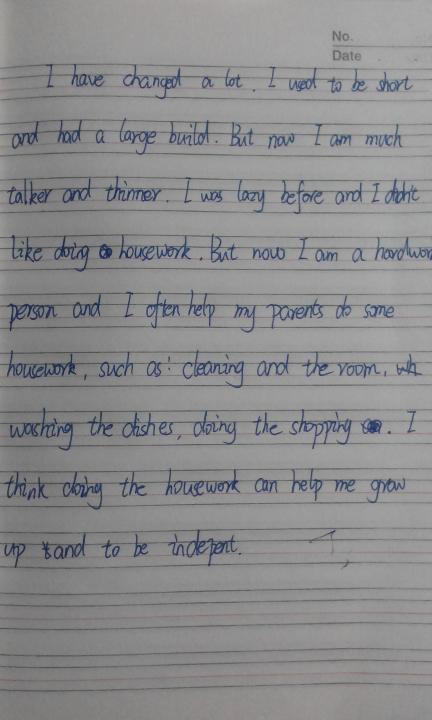 No.
Date
I have changed a lot. I used to be short
and had a large build. But now I am much
talker and thinner. I was lazy before and I didn't
like doing housework. But now I am a hardwor
person and I often help my parents do some
housework, such as: cleaning and the room,
washing the dishes, doing the shopping. I
think doing the housework can help me grow
up and to be indepent.